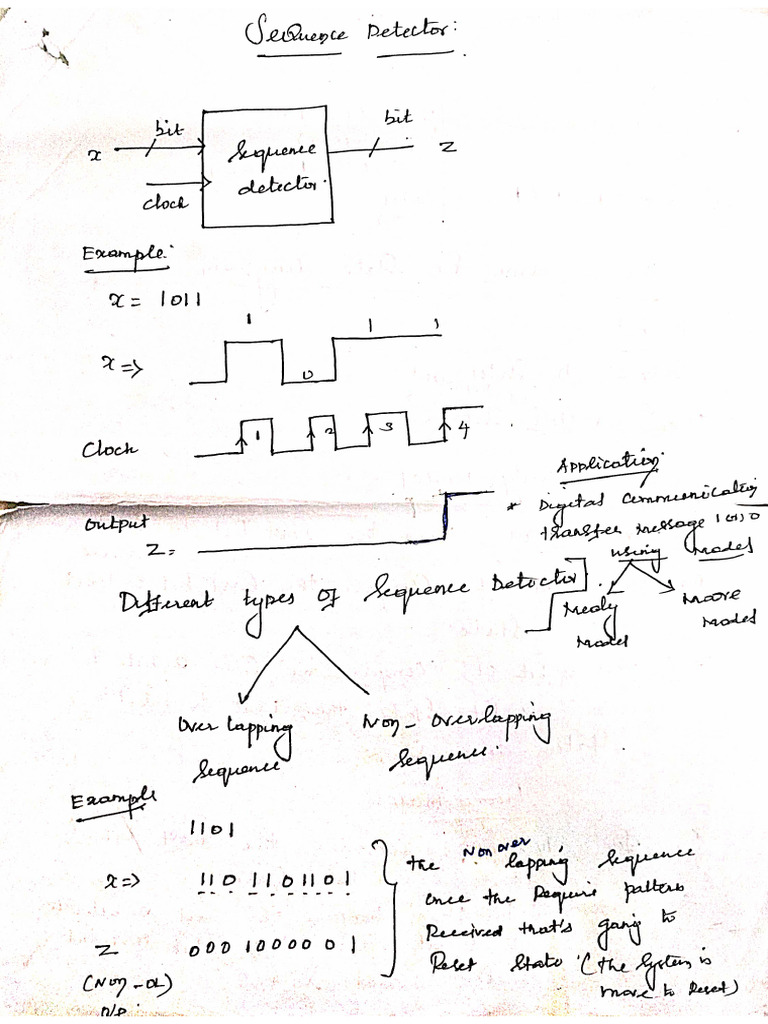 Sequence Detector:
bit
bit
x
Sequence
detector.
Z
clock
Example:
x = 1011
1 1 1
x =>
0
Clock
1 2 3 4
Application:
* Digital Communication
transfer message 1010
using Model
Output
Z =
Different types of Sequence Detector.
Mealy
Model
Moore
Model
Over lapping
Sequence
Non - overlapping
Sequence.
Example
1101
x => 1101101101
Z 0001000001
(Non-OL)
O/P:
the Non over lapping Sequence
once the Require pattern
Received that's going to
Reset State (the System is
move to Reset)